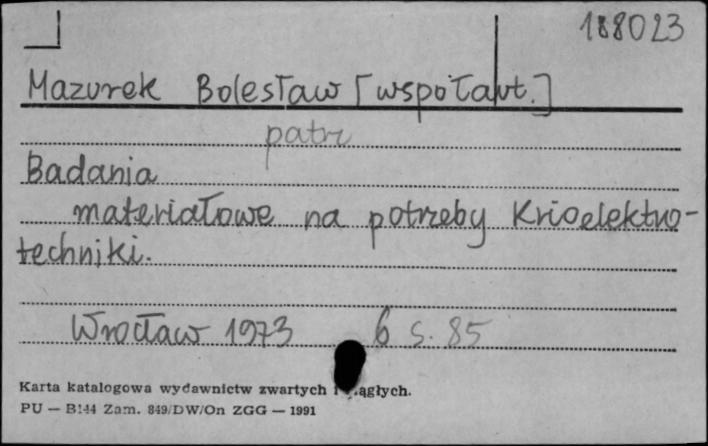 188023
Mazurek Bolesław [współaut.]
patrz
Badania
materiałowe na potrzeby Krioelektro-
techniki.
Wrocław 1973 6 s. 85
Karta katalogowa wydawnictw zwartych i ągłych.
PU — B144 Zam. 849/DW/On ZGG — 1991